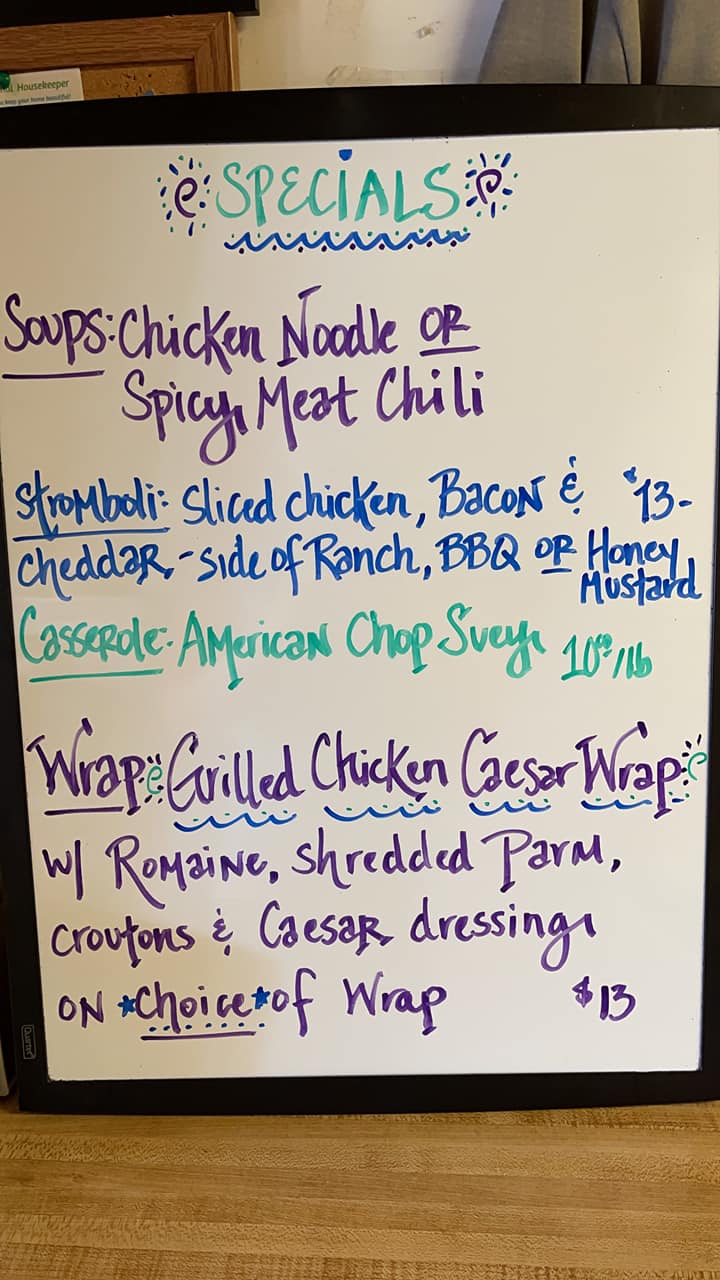 al Housekeeper
keep your home beautiful!
SPECIALS
Soups: Chicken Noodle OR
Spicy Meat Chili
Stromboli: Sliced chicken, Bacon & $13-
cheddar, -side of Ranch, BBQ OR Honey
Mustard
Casserole: American Chop Suey 10⁰⁰/lb
Wrap: Grilled Chicken Caesar Wrap
w/ Romaine, shredded Parm,
croutons & Caesar dressing
on *Choice* of Wrap $13
Quartet